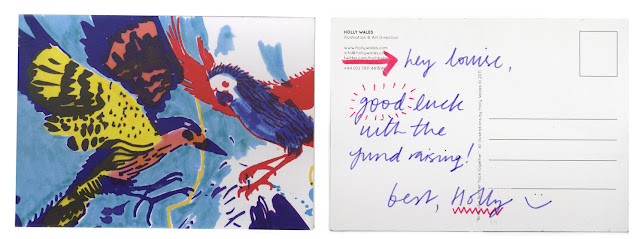 HOLLY WALES
Illustration & Art Direction
www.hollywales.com
info@hollywales.com
hey louise,
good luck
with the
fund raising!
best, Holly